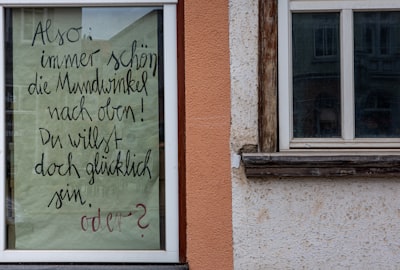 Also
immer schön
die Mundwinkel
nach oben!
Du willst
doch glücklich
sein.
oder?